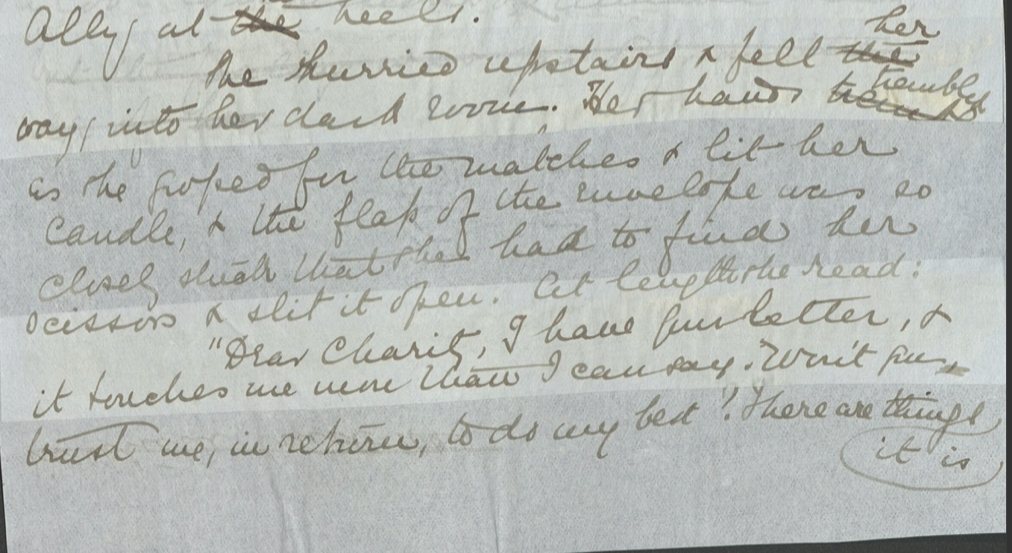 Ally at ~~the~~ heels.
She hurried upstairs & felt ~~the~~ her
way into her dark room. Her hands ~~tremb~~ trembled
as she groped for the matches & lit her
candle, & the flap of the envelope was so
closely stuck that she had to find her
scissors & slit it open. At length she read:
"Dear Charity, I have your letter, &
it touches me more than I can say. Won't you
trust me, in return, to do my best? There are things
it is